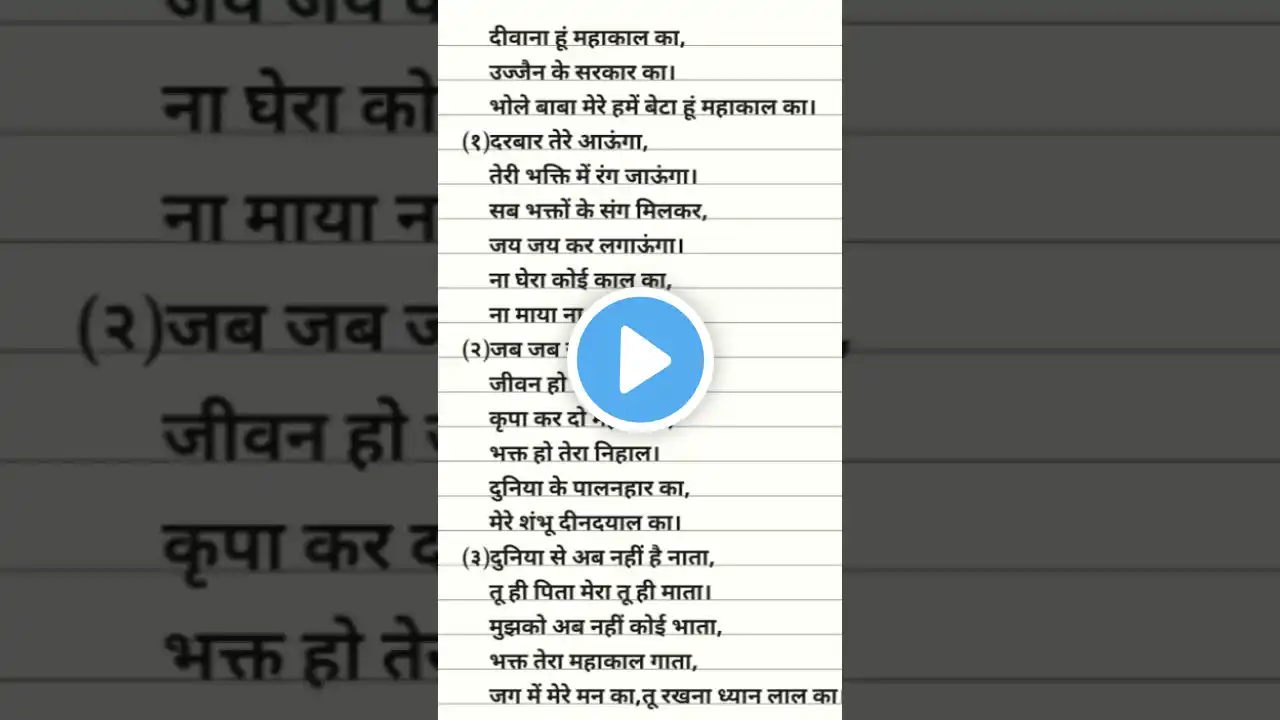 दीवाना हूं महाकाल का,
उज्जैन के सरकार का।
भोले बाबा मेरे हमें बेटा हूं महाकाल का।
(१)दरबार तेरे आऊंगा,
तेरी भक्ति में रंग जाऊंगा।
सब भक्तों के संग मिलकर,
जय जय कर लगाऊंगा।
ना घेरा कोई काल का,
ना माया ना
(२)जब जब
जीवन हो
कृपा कर दो
भक्त हो तेरा निहाल।
दुनिया के पालनहार का,
मेरे शंभू दीनदयाल का।
(३)दुनिया से अब नहीं है नाता,
तू ही पिता मेरा तू ही माता।
मुझको अब नहीं कोई भाता,
भक्त तेरा महाकाल गाता,
जग में मेरे मन का,तू रखना ध्यान लाल का